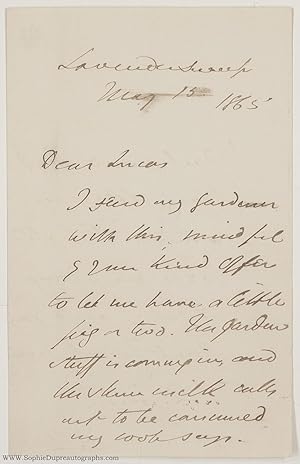 Lavender Sweep
May 15 1865
Dear Lucas
I send my gardener
with this, mindful
of your kind offer
to let me have a little
pig or two. The garden
stuff is coming in, and
the skim milk calls
out to be consumed
my cook says.
(c) www.SophieDupreautographs.com